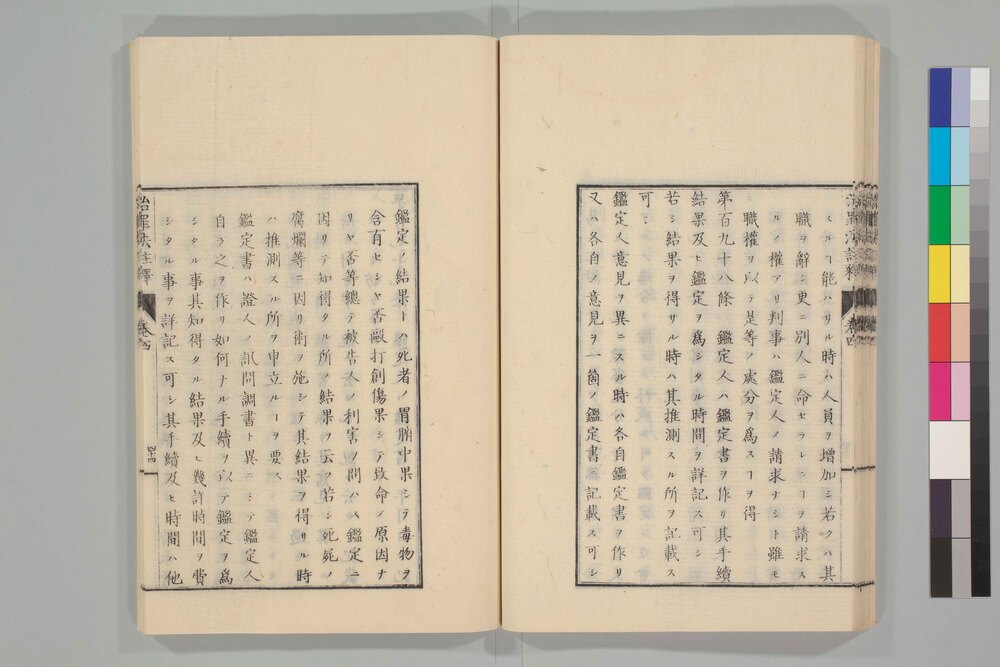 スルヿ能ハサル時ハ人員ヲ增加シ若クハ其
職ヲ辭シ更ニ別人ニ命セラレンヿヲ請求ス
ルノ權アリ判事ハ鑑定人ノ請求ナシト雖モ
職權ヲ以テ是等ノ處分ヲ爲スヿヲ得
第百九十八條 鑑定人ハ鑑定書ヲ作リ其手續
結果及ヒ鑑定ヲ爲シタル時間ヲ詳記ス可シ
若シ結果ヲ得サル時ハ其推測スル所ヲ記載ス
可シ
鑑定人意見ヲ異ニスル時ハ各自鑑定書ヲ作リ
又ハ各自ノ意見ヲ一箇ノ鑑定書ニ記載ス可シ
鑑定ノ結果トハ死者ノ胃腑中果シテ毒物ヲ
含有セシヤ否毆打創傷果シテ致命ノ原因ナ
リヤ否等總テ被告人ノ利害ヲ問ハス鑑定ニ
因リテ知得タル所ノ結果ヲ云フ若シ死屍ノ
腐爛等ニ因リ術ヲ施シテ其結果ヲ得サル時
ハ推測スル所ヲ申立ルヿヲ要ス
鑑定書ハ證人ノ訊問調書ト異ニシテ鑑定人
自ラ之ヲ作リ如何ナル手續ヲ以テ鑑定ヲ爲
シタル事其知得タル結果及ヒ幾許時間ヲ費
シタル事ヲ詳記ス可シ其手續及ヒ時間ハ他
治罪法註釋 卷四 四四